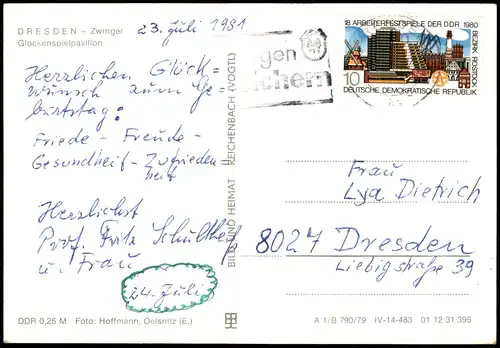 DRESDEN – Zwinger
Glockenspielpavillon
23. Juli 1981
Herzlichen Glück=
wunsch zum Ge=
burtstag!
Friede - Freude -
Gesundheit - Zufrieden=
heit
Herzlichst
Prof. Fritz
u. Frau
24. Juli
DDR 0,25 M Foto: Hoffmann, Oelsnitz (E.)
BILD UND HEIMAT REICHENBACH (VOGTL)
18. ARBEITERFESTSPIELE DER DDR 1980
BEZIRK ROSTOCK
10 DEUTSCHE DEMOKRATISCHE REPUBLIK
Frau
Lya Dietrich
8027 Dresden
Liebigstraße 39
A 1/B 790/79 IV-14-483 01 12 31 395